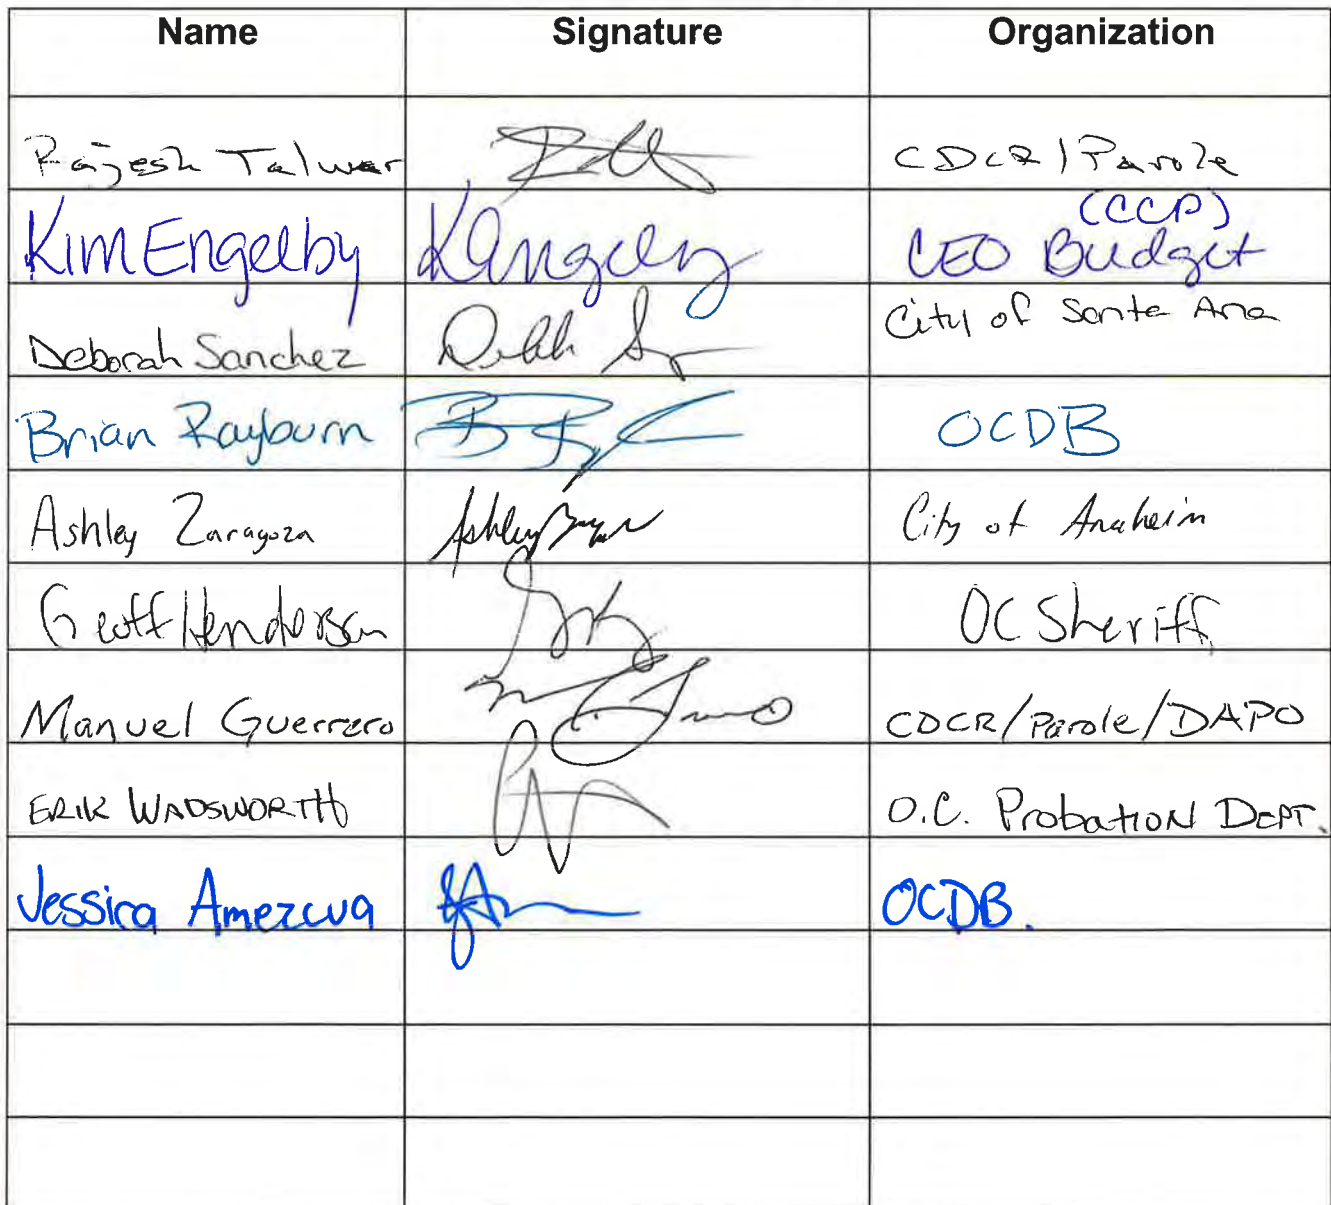 Name Signature Organization
Rajesh Talwar CDCR/Parole
(CCP)
Kim Engelby CEO Budget
Deborah Sanchez City of Santa Ana
Brian Rayburn OCDB
Ashley Zaragoza City of Anaheim
Geoff Henderson OC Sheriff
Manuel Guerrero CDCR/Parole/DAPO
ERIK WADSWORTH O.C. Probation DEPT.
Jessica Amezcua OCDB.